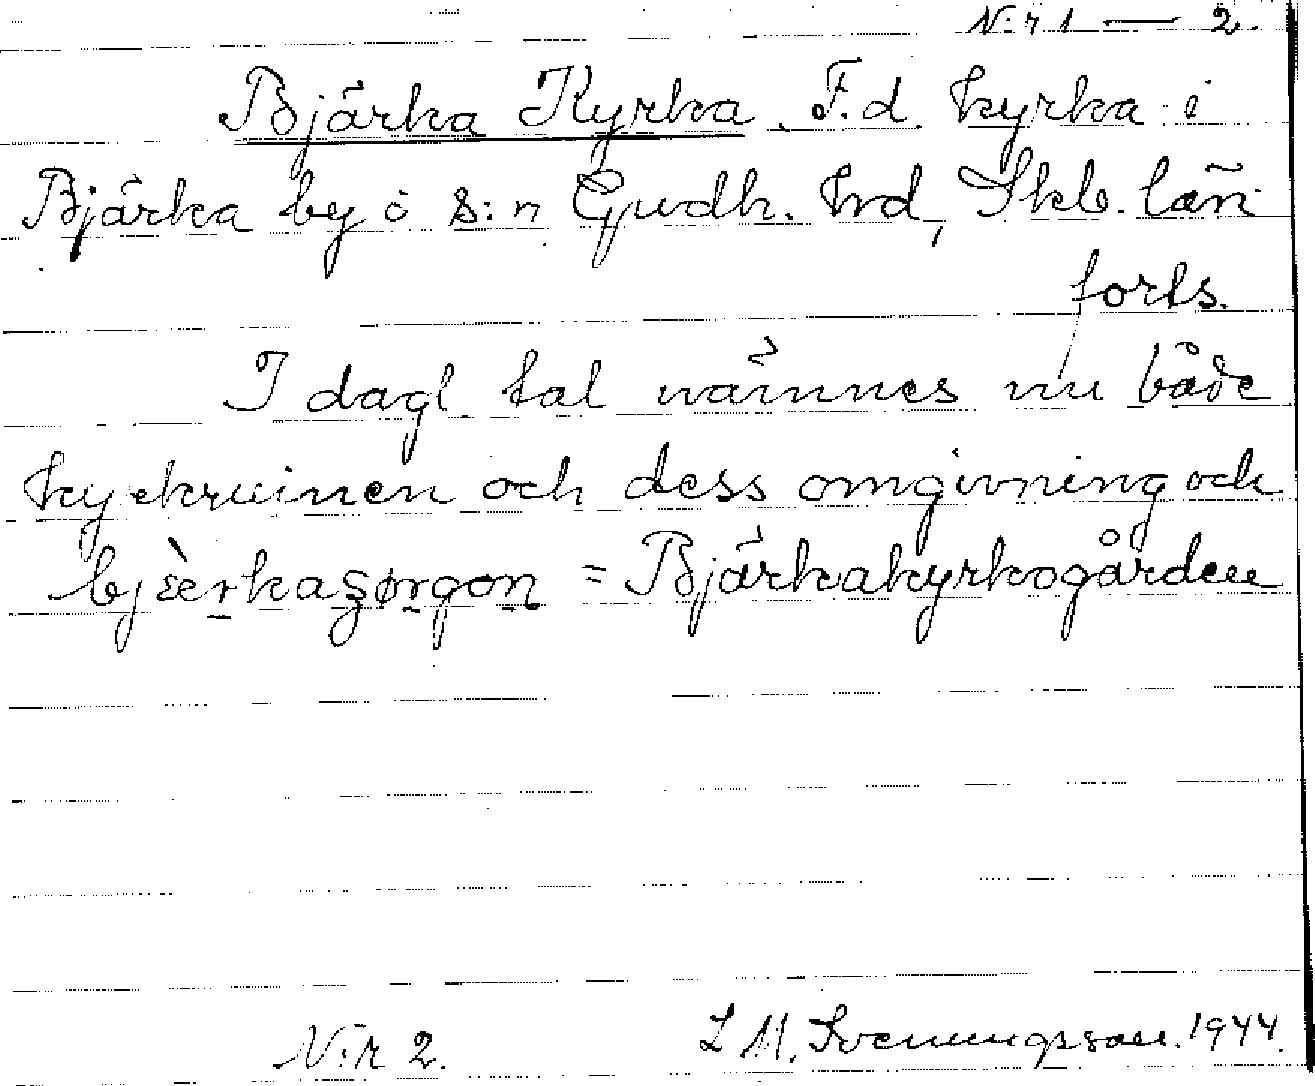 N:r 1 — 2.
Bjärka Kyrka. F.d. kyrka i
Bjärka by o s:n Gudh. hrd, Skb. län
forts.
I dagl. tal nämnes nu både
kyrkruinen och dess omgivning och
bjærkaşørgon = Bjärkakyrkogården
N:r 2. L M. Svenungsson. 1944.